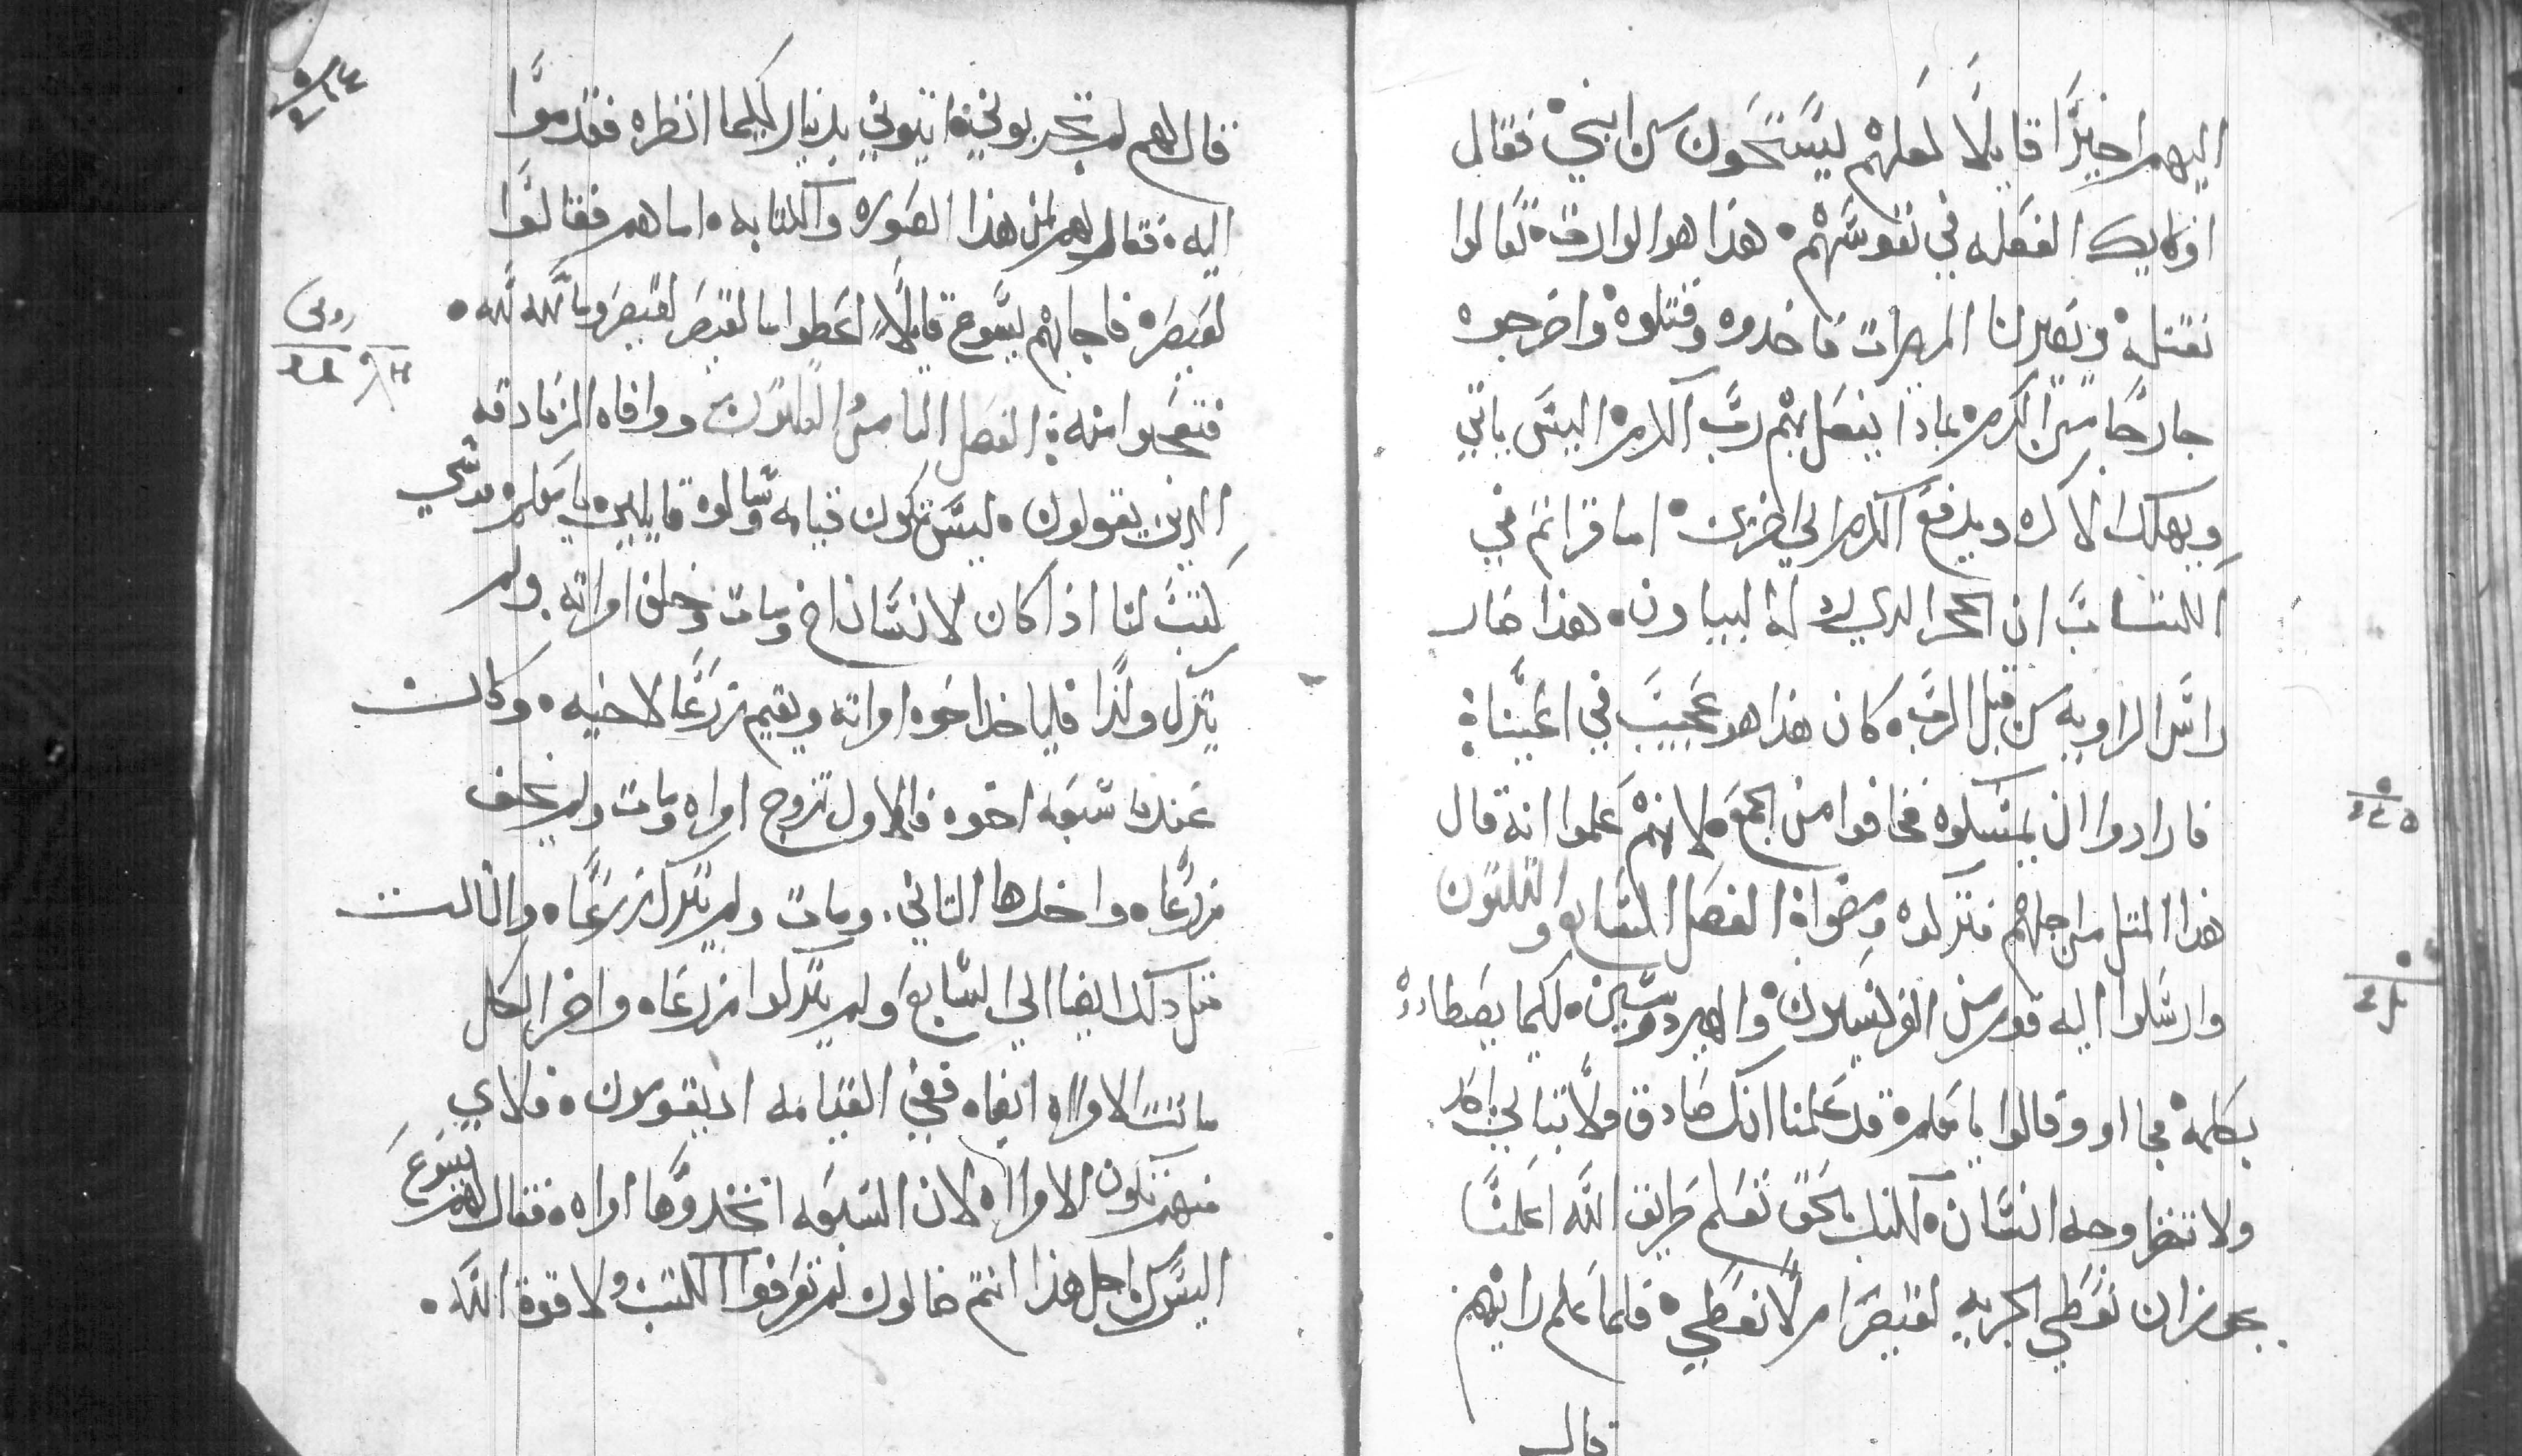 اليهم اخيرًا قايلًا لعلهم ليستحون من ابني فقال
اولايك الفعله في نفوسهم هذا هو الوارث تعالوا
نقتله ويصير لنا الميرات فاخدوه وقتلوه واخرجوه
خارجًا من الكرم فمادا يفعل بهم رب الكرم اليس ياتي
ويهلك الاكره ويدفع الكرم الي اخرين اما قراتم في
الكتاب ان الحجر الدي ادله البياون هذا صار
راس الزاويه من قبل الرب كان هذا هو عجيب في اعيننا
فارادوا ان يمسكوه فخافوا من الجمع لانهم علموا انه قال
هذا المتل من اجلهم فتركوه ومضوا الفصل السابع والتلتون
وارسلوا اليه قوم من الفريسيون والهيردوسين لكيما يصطادوه
بكلمة فجااو وقالوا يا معلم قد علمنا انك صادق ولا تبالي باحد
ولا تنظر وجه انسان لكنك بالحق تعلم طريق الله اعلمنا
يجوز ان نعطي الجزيه لقيصر ام لا نعطي فلما علم رايهم
قال
قال لهم لم تجربوني ايتوني بدينار لكيما انظره فقدموا
اليه فقال لهم لمن هذا الصوره والكتابه اما هم فقالوا
لقيصر فاجابهم يسوع قايلًا اعطوا ما لقيصر لقيصر وما لله لله
فتعجبوا منه الفصل التامن التلتون ووافاه الزنادقه
الدين يقولون ليس تكون قيامه وسالوه قايلين يا معلم موسي
كتب لنا اذا كان لانسان اخ ومات وخلف امراته ولم
يترك ولدًا فلياخد اخوه امراته ويقيم زرعًا لاخيه وكان
عندنا سبعه اخوه فالاول تزوج امراه ومات ولم يخلف
زرعًا واخدها التاني ومات ولم يترك زرعًا والتالت
متل دلك ايضا الي السابع ولم يتركوا زرعا واخر الكل
ماتت الامراه ايضا ففي القيامه اد يقومون فلاي
منهم تكون الامراه لان السبعه اتخدوها امراه فقال لهم يسوع
اليس من اجل هذا انتم ضالون لم تعرفوا الكتب ولا قوة الله